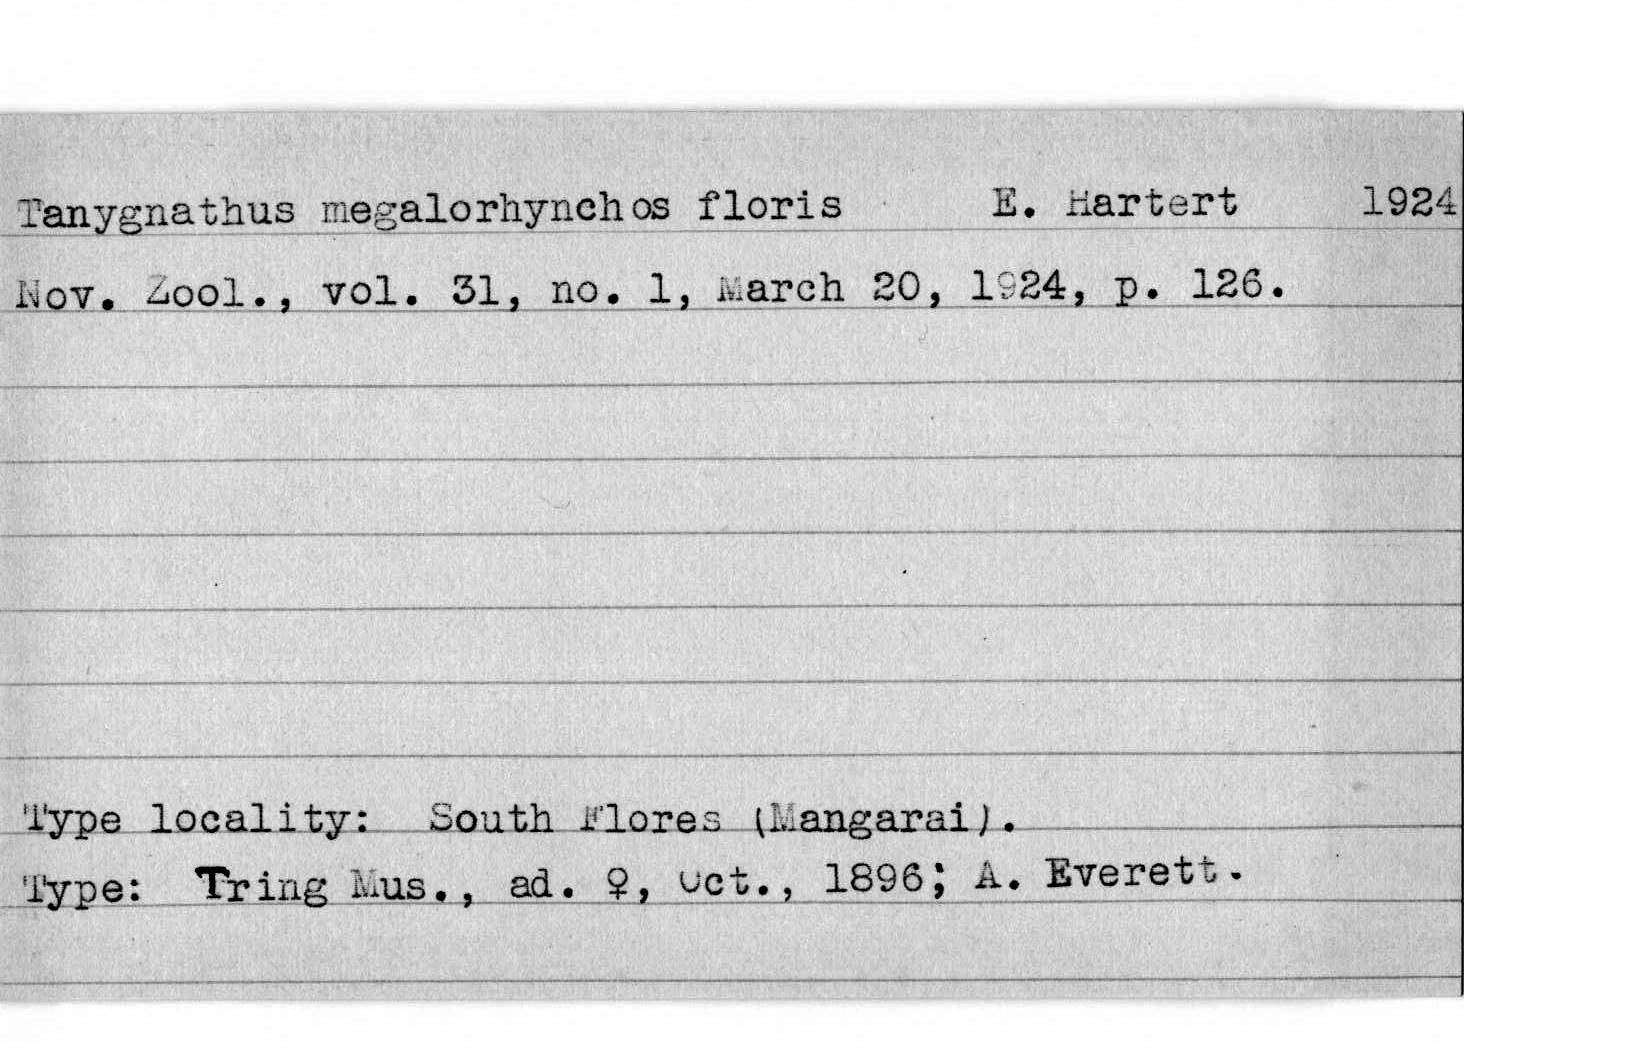 Tanygnathus megalorhynchos floris E. Hartert 1924
Nov. Zool., vol. 31, no. 1, March 20, 1924, p. 126.
Type locality: South Flores (Mangarai).
Type: Tring Mus., ad. ♀, Oct., 1896; A. Everett.